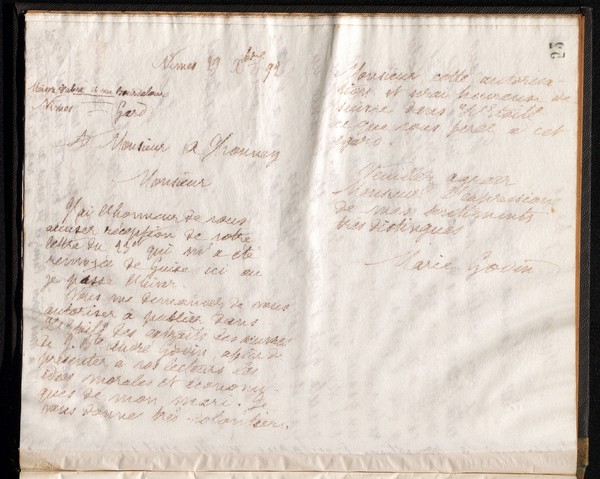 Nimes 29 Xbre 92
Maison Dubra rue Bourdaloue
Nimes Gard
A Monsieur A
Monsieur
J'ai l'honneur de vous
accuser réception de votre
lettre du 22 qui m'a été
renvoyée de Guise ici où
je passe l'hiver.
Vous me demandez de vous
autoriser à publier dans
des extraits des œuvres
de J. Bte André Godin, afin de
présenter à vos lecteurs les
idées morales et économi-
ques de mon mari. Je
vous donne très volontiers,
Monsieur cette autorisa-
tion et serai heureuse de
suivre dans
ce que vous ferez à cet
égard.
Veuillez agréer
Monsieur l'expression
de mes sentiments
très distingués
Marie Godin
25